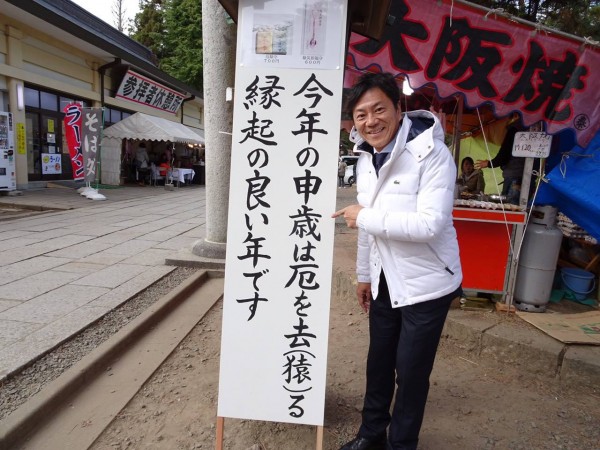 今年の申歳は厄を去(猿)る
縁起の良い年です
大阪焼
参拝者休憩所
ラーメン
そば